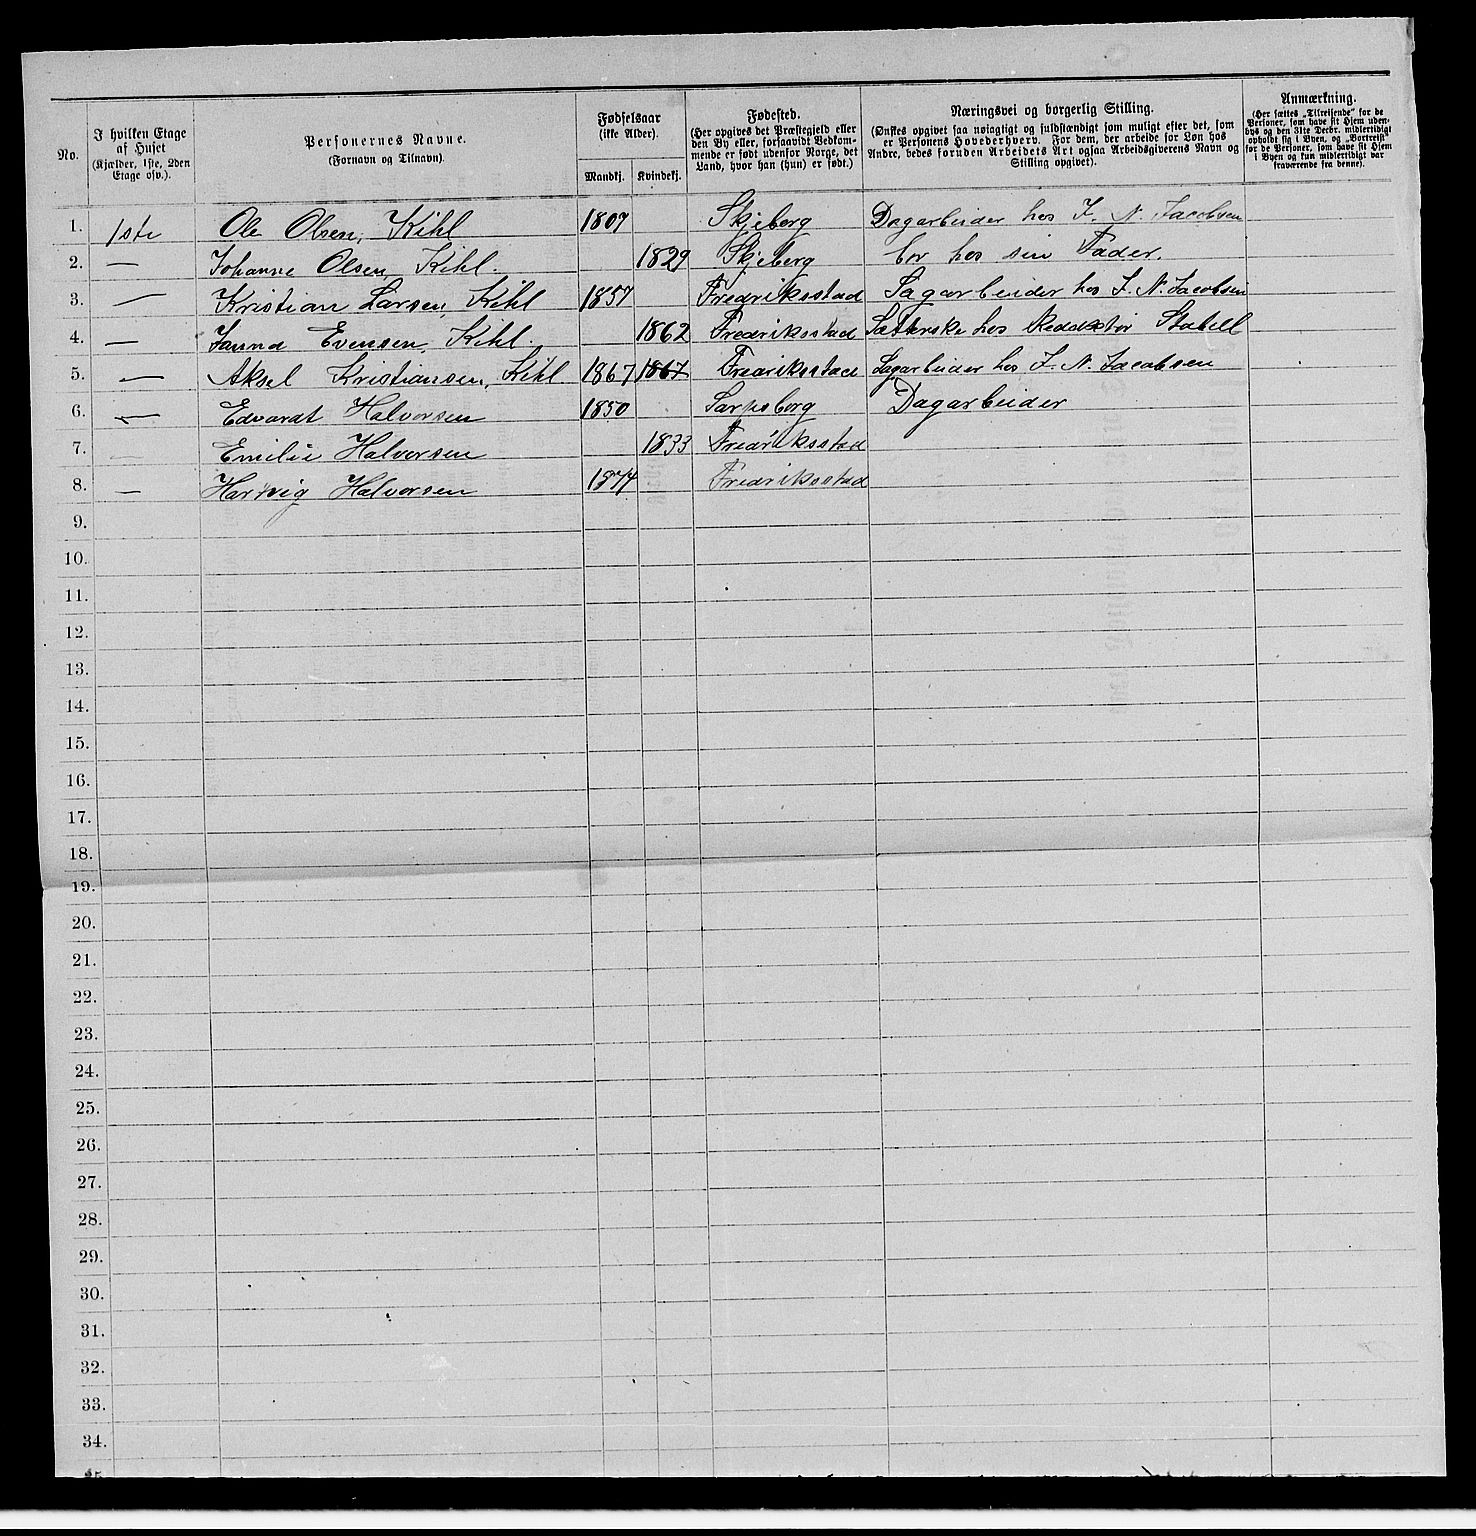 No.
I hvilken Etage
af Huset
(Kjælder, 1ste, 2den
Etage osv.).
Personernes Navne.
(Fornavn og Tilnavn).
Fødselsaar
(ikke Alder).
Mandkj. Kvindekj.
Fødested.
(Her opgives det Præstegjeld eller
den By eller, forsaavidt Vedkom-
mende er født udenfor Norge, det
Land, hvor han (hun) er født.)
Næringsvei og borgerlig Stilling.
(Ønskes opgivet saa nøiagtigt og fuldstændigt som muligt efter det, som
er Personens Hovederhverv. For dem, der arbeide for Løn hos
Andre, bedes foruden Arbeidets Art ogsaa Arbeidsgiverens Navn og
Stilling opgivet).
Anmærkning.
(Her sættes „Tilreisende“ for de
Personer, som have sit Hjem uden-
bys og den 31te Decbr. midlertidigt
opholdt sig i Byen, og „Bortreist“
for de Personer, som have sit Hjem
i Byen og kun midlertidigt var
fraværende fra denne).
1. 1ste Ole Olsen, Kihl 1807 Skjeberg Dagarbeider hos J. N. Jacobsen
2. — Johanne Olsen, Kihl. 1829 Skjeberg bor hos sin Fader.
3. — Kristian Larsen, Kihl 1857 Fredriksstad Sagarbeider hos J. N. Jacobsen
4. — Janna Evensen, Kihl. 1862 Fredriksstad Sætterske hos Redaktør Stabell
5. — Aksel Kristiansen, Kihl 1867 1867 Fredriksstad Sagarbeider hos J. N. Jacobsen
6. — Edvardt Halvorsen 1850 Sarpsborg Dagarbeider
7. Emilie Halvorsen 1833 Fredriksstad
8. — Hartvig Halvorsen 1874 Fredriksstad
9.
10.
11.
12.
13.
14.
15.
16.
17.
18.
19.
20.
21.
22.
23.
24.
25.
26.
27.
28.
29.
30.
31.
32.
33.
34.
35